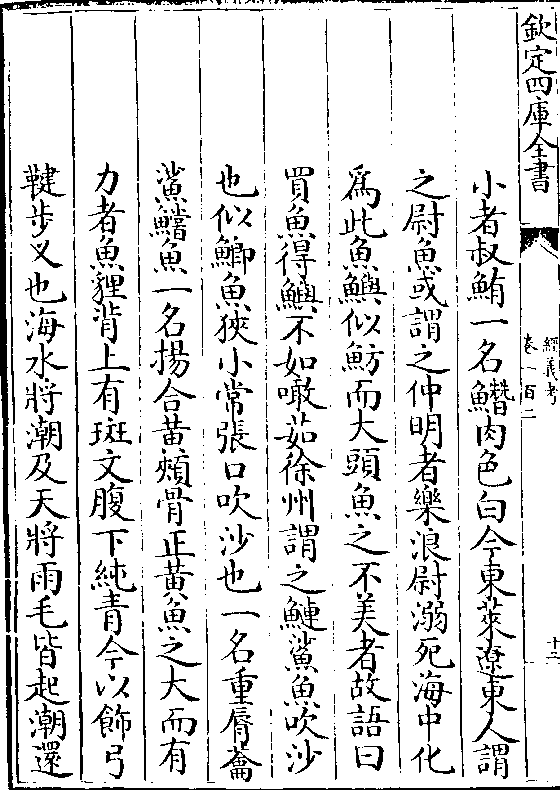 欽定四庫全書
經義考
卷一百二
十二
小者叔鮪一名鱵肉色白今東萊遼東人謂
之尉魚或謂之仲明者樂浪尉溺死海中化
為此魚鱮似魴而大頭魚之不美者故語曰
買魚得鱮不如噉茹徐州謂之鰱鯊魚吹沙
也似鯽魚狹小常張口吹沙也一名重脣籥
鯊鱨魚一名揚合黄頰骨正黄魚之大而有
力者魚貍背上有斑文腹下純青今以飾弓
鞬步叉也海水將潮及天將雨毛皆起潮還